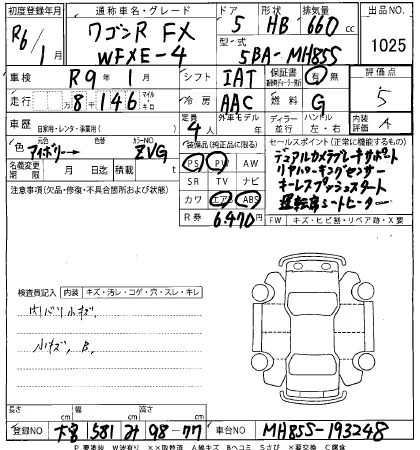 初度登録年月 通称車名・グレード ドア 形状 排気量 出品NO
R6/1月 ワゴンR FX 5 HB 660cc 1025
WFXE-4 型・式 5BA-MH85S
車検 R9年1月 シフト IAT 保証書 有・無 評価点
走行 8千146 マイル キロ 冷房 AAC 燃料 G 5
車歴 自家用・レンタ・事業用( ) 定員 4人 外車モデル 年 ディーラー 並行 ハンドル 左・右 内装評価 A
色 元色 アイボリー→ 色替 カラーNO ZVG 装備品(純正品に限る) セールスポイント(正常に機能するもの)
名義変更期限 月 日 積載 t PS PW AW デュアルカメラブレーキサポート
注意事項(欠品・修復・不具合箇所および状態) SR TV ナビ リヤパーキングセンサー
カワ エアB ABS キーレスプッシュスタート
R券 6,470円 運転席シートヒーター
FW キズ・ヒビ割・リペア跡・X要
検査員記入 内装 キズ・汚レ・コゲ・穴・スレ・キレ
内バリ小キズ
小キズ、B、
長さ cm 幅 cm 高さ cm
登録NO 581 み 98-77 車台NO MH85S-193248
P 要塗装 W波有り ××取替済 A線キズ Bヘコミ Sさび ×要交換 C腐食